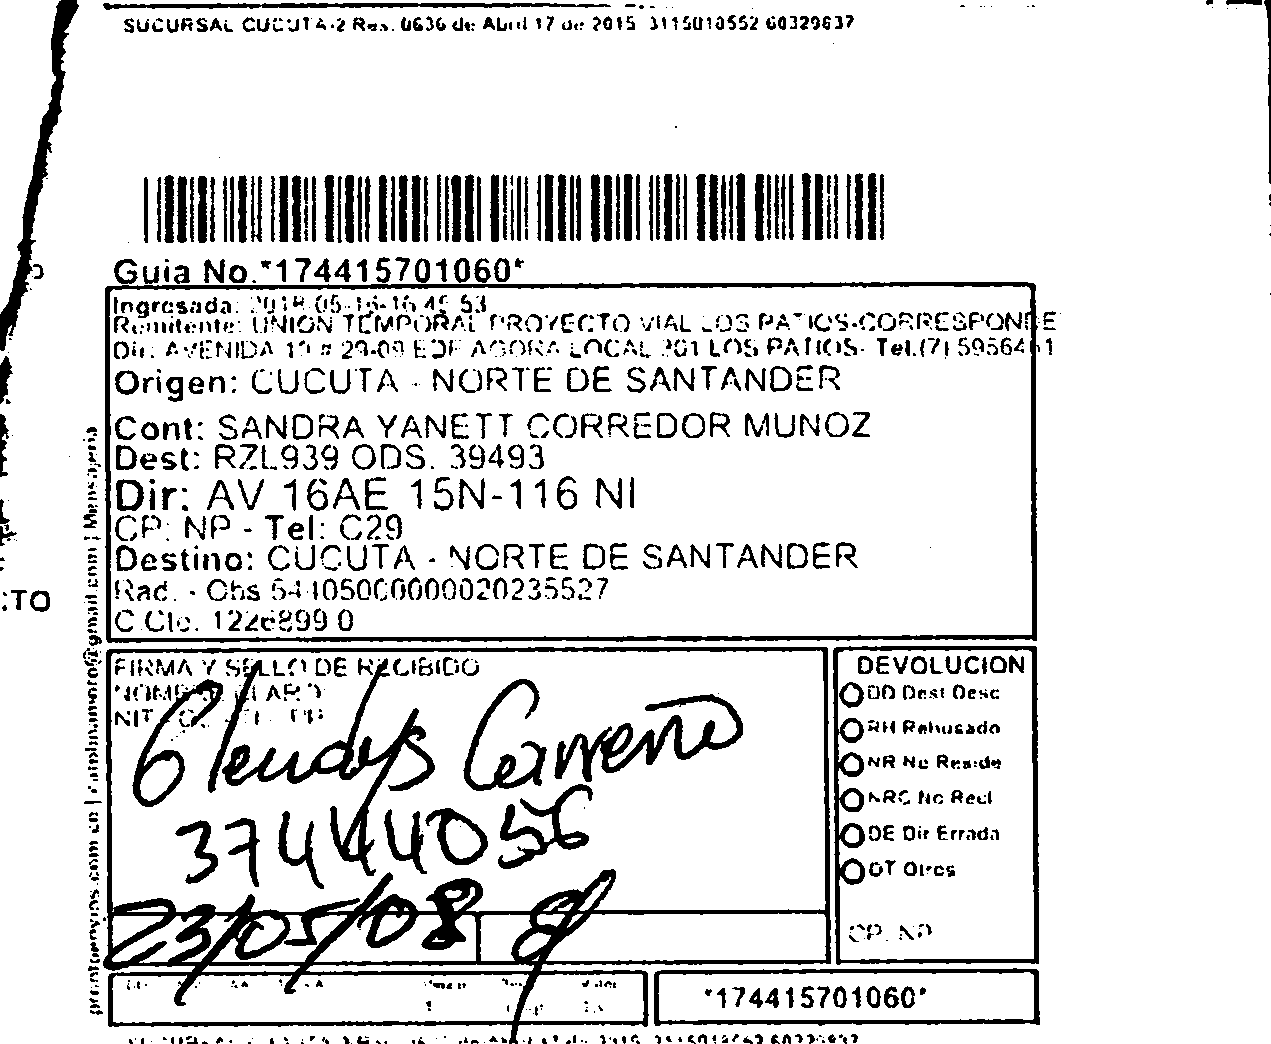 SUCURSAL CUCUTA-2 Res. 0636 de Abril 17 de 2015 3115010552 60329837
Guia No.*174415701060*
Ingresada: 2018-05-16-16 46 53
Remitente: UNION TEMPORAL PROYECTO VIAL LOS PATIOS-CORRESPONDE
Dir: AVENIDA 10 # 29-09 EDF AGORA LOCAL 201 LOS PATIOS- Tel.(7)
Origen: CUCUTA - NORTE DE SANTANDER
Cont: SANDRA YANETT CORREDOR MUNOZ
Dest: RZL939 ODS. 39493
Dir: AV 16AE 15N-116 NI
CP: NP - Tel: C29
Destino: CUCUTA - NORTE DE SANTANDER
Rad. - Obs 54405000000020235527
C.Cto. 1226899 0
:TO
FIRMA Y SELLO DE RECIBIDO
NOMBRE CLARO
NIT
Glendys Carreño
37444056
23/05/08
DEVOLUCION
DD Dest Desc
RH Rehusado
NR No Reside
NRC No Recl
DE Dir Errada
OT Otros
CP: NP
*174415701060*